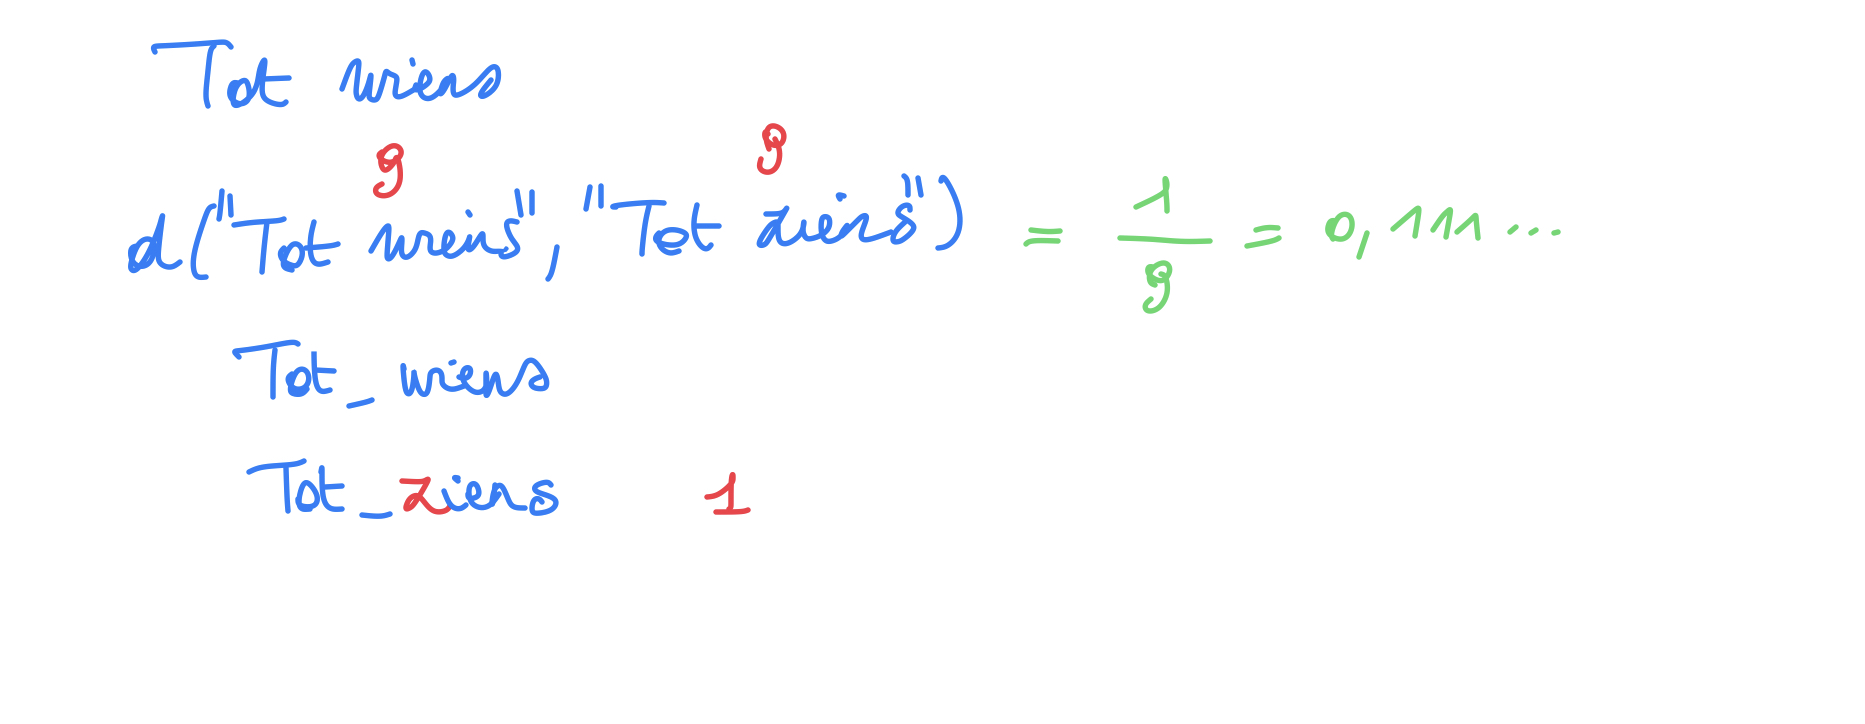 Tot wiens
9 9
d("Tot wiens", "Tot ziens") = 1/9 = 0,111...
Tot_wiens
Tot_ziens 1